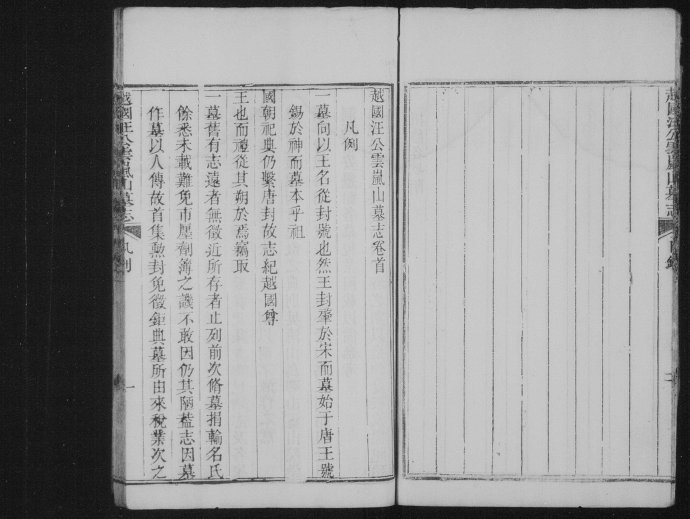 越國汪公雲嵐山墓志
目錄
越國汪公雲嵐山墓志卷首
凡例
一墓向以王名從封號也然王封肇於宋而墓始于唐王號
錫於神而墓本乎祖
國朝祀典仍繫唐封故志紀越國尊
王也而禮從其朔於焉竊取
一墓舊有志遠者無徵近所存者止列前次脩墓捐輸名氏
餘悉未載難免市壓劑簿之譏不敢因仍其陋葢志因墓
作墓以人傳故首集勲封免徵鉅典墓所由來稅業次之
越國汪公雲嵐山墓志
凡例
一